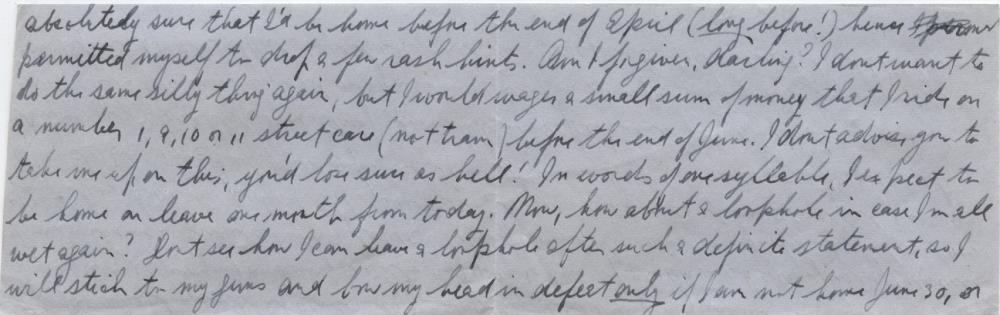 absolutely sure that I'd be home before the end of April (long before!) hence I
permitted myself to drop a few rash hints. Am I forgiven, darling? I don't want to
do the same silly thing again, but I would wager a small sum of money that I ride on
a number 1, 9, 10 or 11 street care (not tram) before the end of June. I don't advise you to
take me up on this, you'd lose sure as hell! In words of one syllable, I expect to
be home on leave one month from today. Now, how about a loophole in case I'm all
wet again? Don't see how I can leave a loophole after such a definite statement, so I
will stick to my guns and bow my head in defeat only if I am not home June 30, or